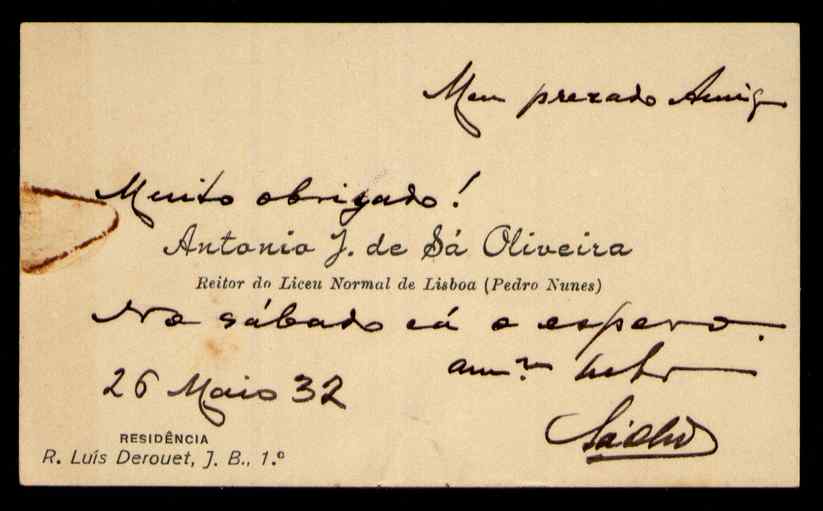 Meu prezado Amigo
Muito obrigado!
Antonio J. de Sá Oliveira
Reitor do Liceu Normal de Lisboa (Pedro Nunes)
No sábado cá o espero.
26 Maio 32
RESIDÊNCIA
R. Luís Derouet, J. B., 1.º